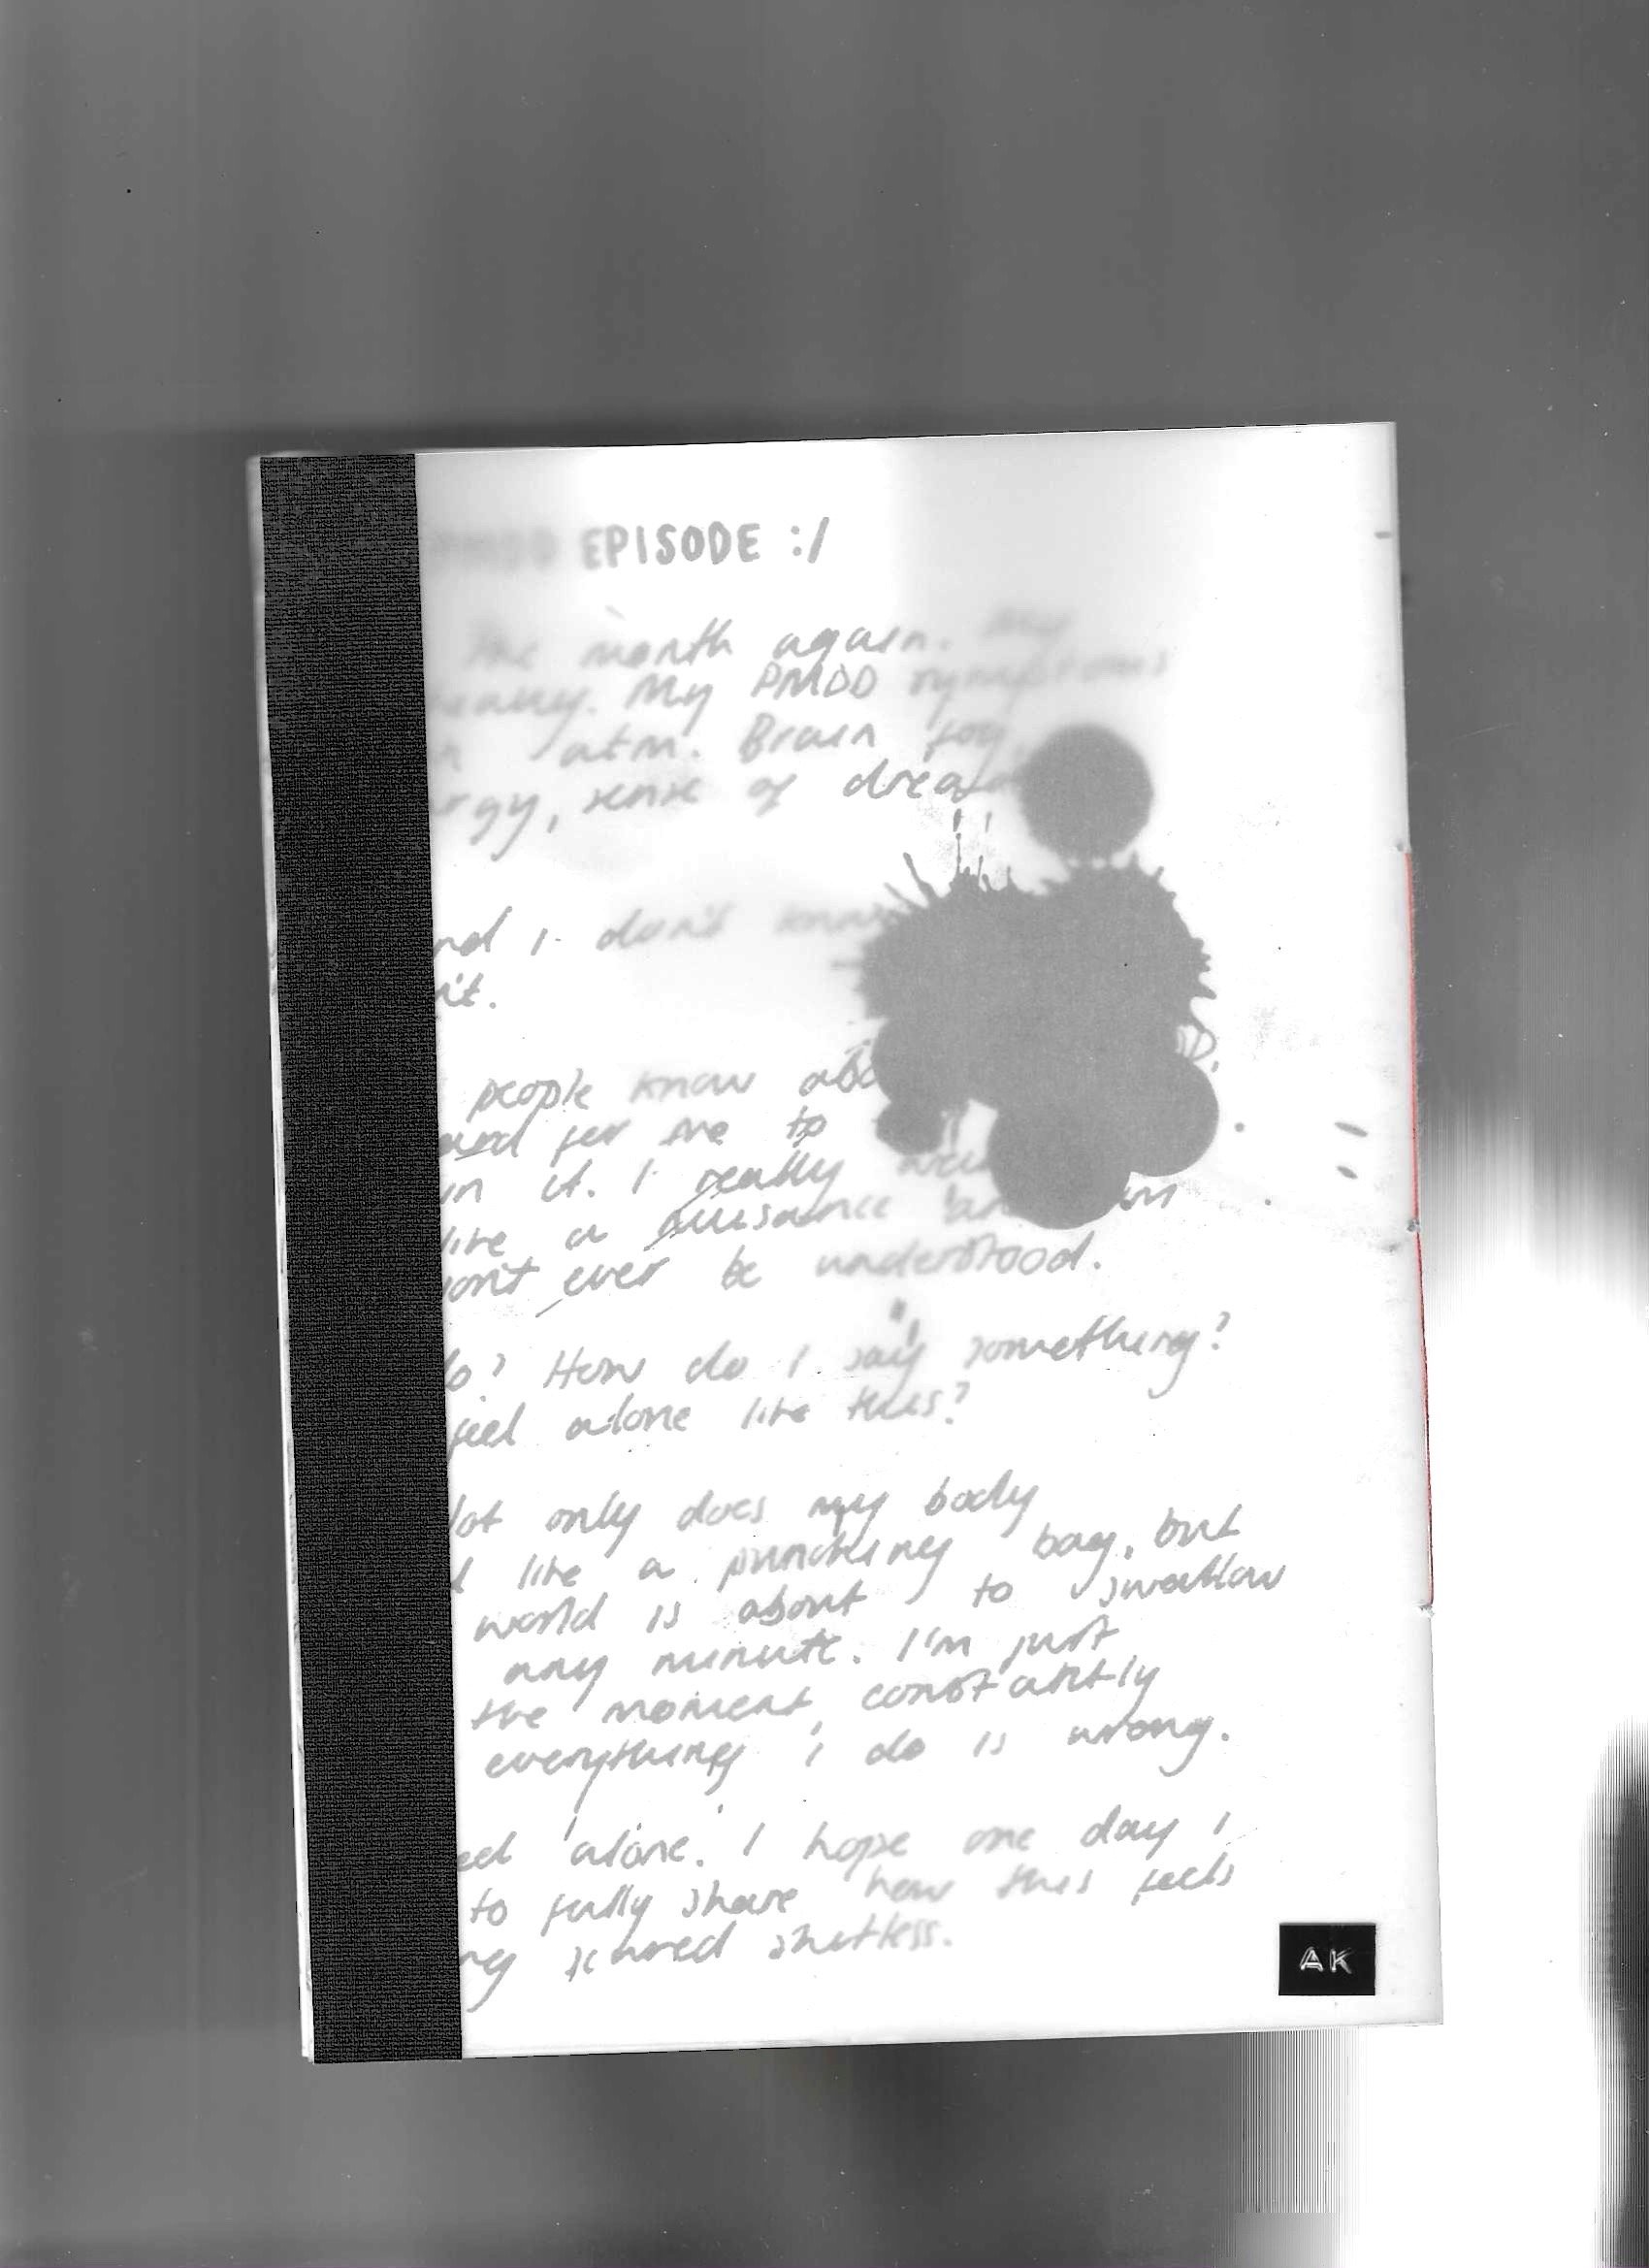 PMDD EPISODE :/
the month again. My
. My PMDD symptoms
atm. Brain fog
rgy, sense of drea
nd i don't know
it.
people know abo
for me to
in it. I really
like a nuisance
ont ever be understood.
do? How do I say something?
feel alone like this?
ot only does my body
like a punching bag, but
world is about to swallow
any minute. I'm just
the moment constantly
everything i do is wrong.
alone. I hope one day i
to fully share how this feels
ng scared shitless.
AK